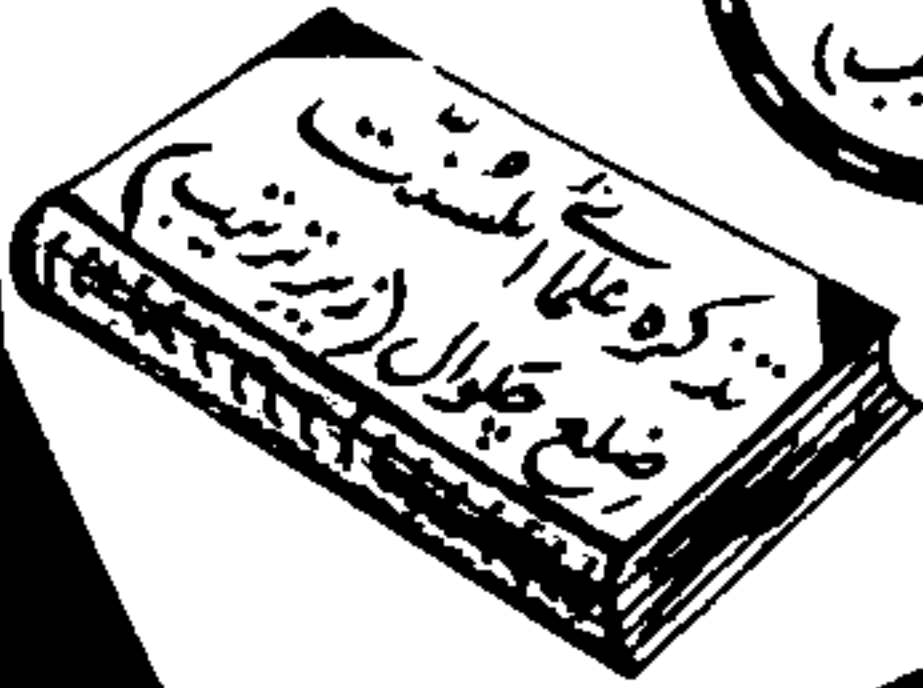 تذکرہ علمائے اہلسنّت
ضلع چکوال (زیر ترتیب)